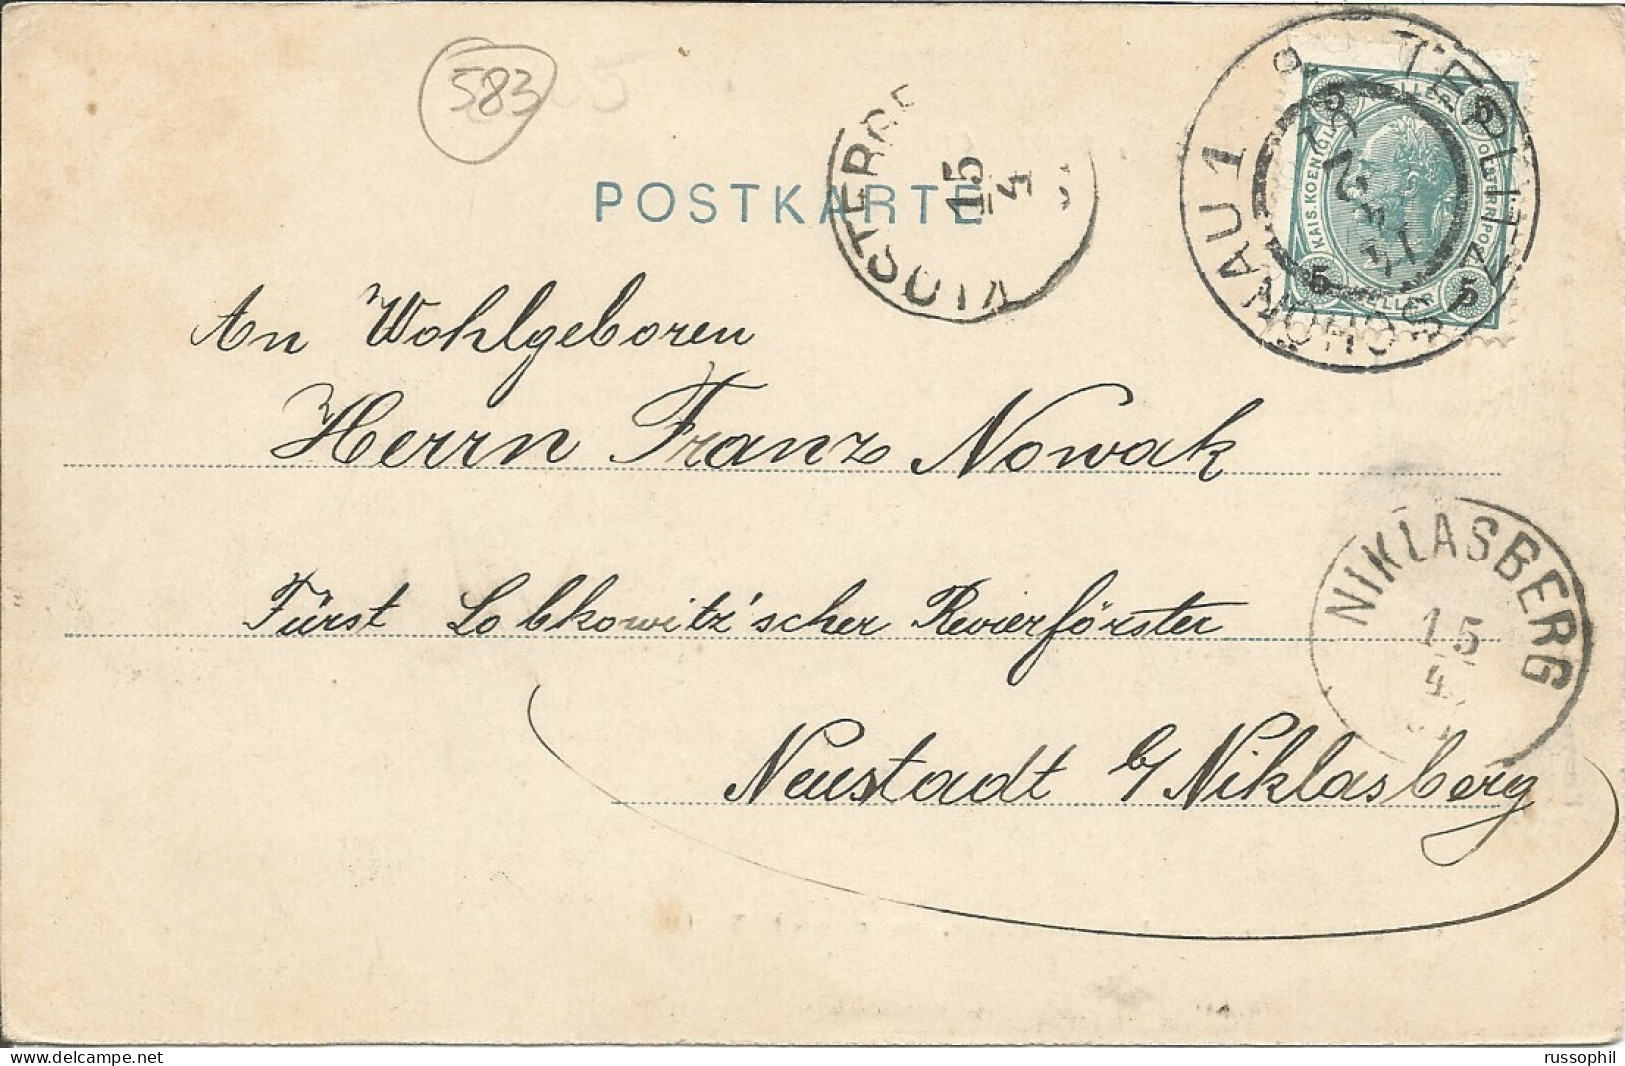 583
POSTKARTE
15
4
TEPLITZ
SCHÖNAU 1
KAIS. KOENIGL.
OESTERR. POST
5
5
5
5
HELLER
An Wohlgeboren
Herrn Franz Nowak
Fürst Lobkowitz'scher Revierförster
Neustadt b/ Niklasberg
NIKLASBERG
15
4
russophil